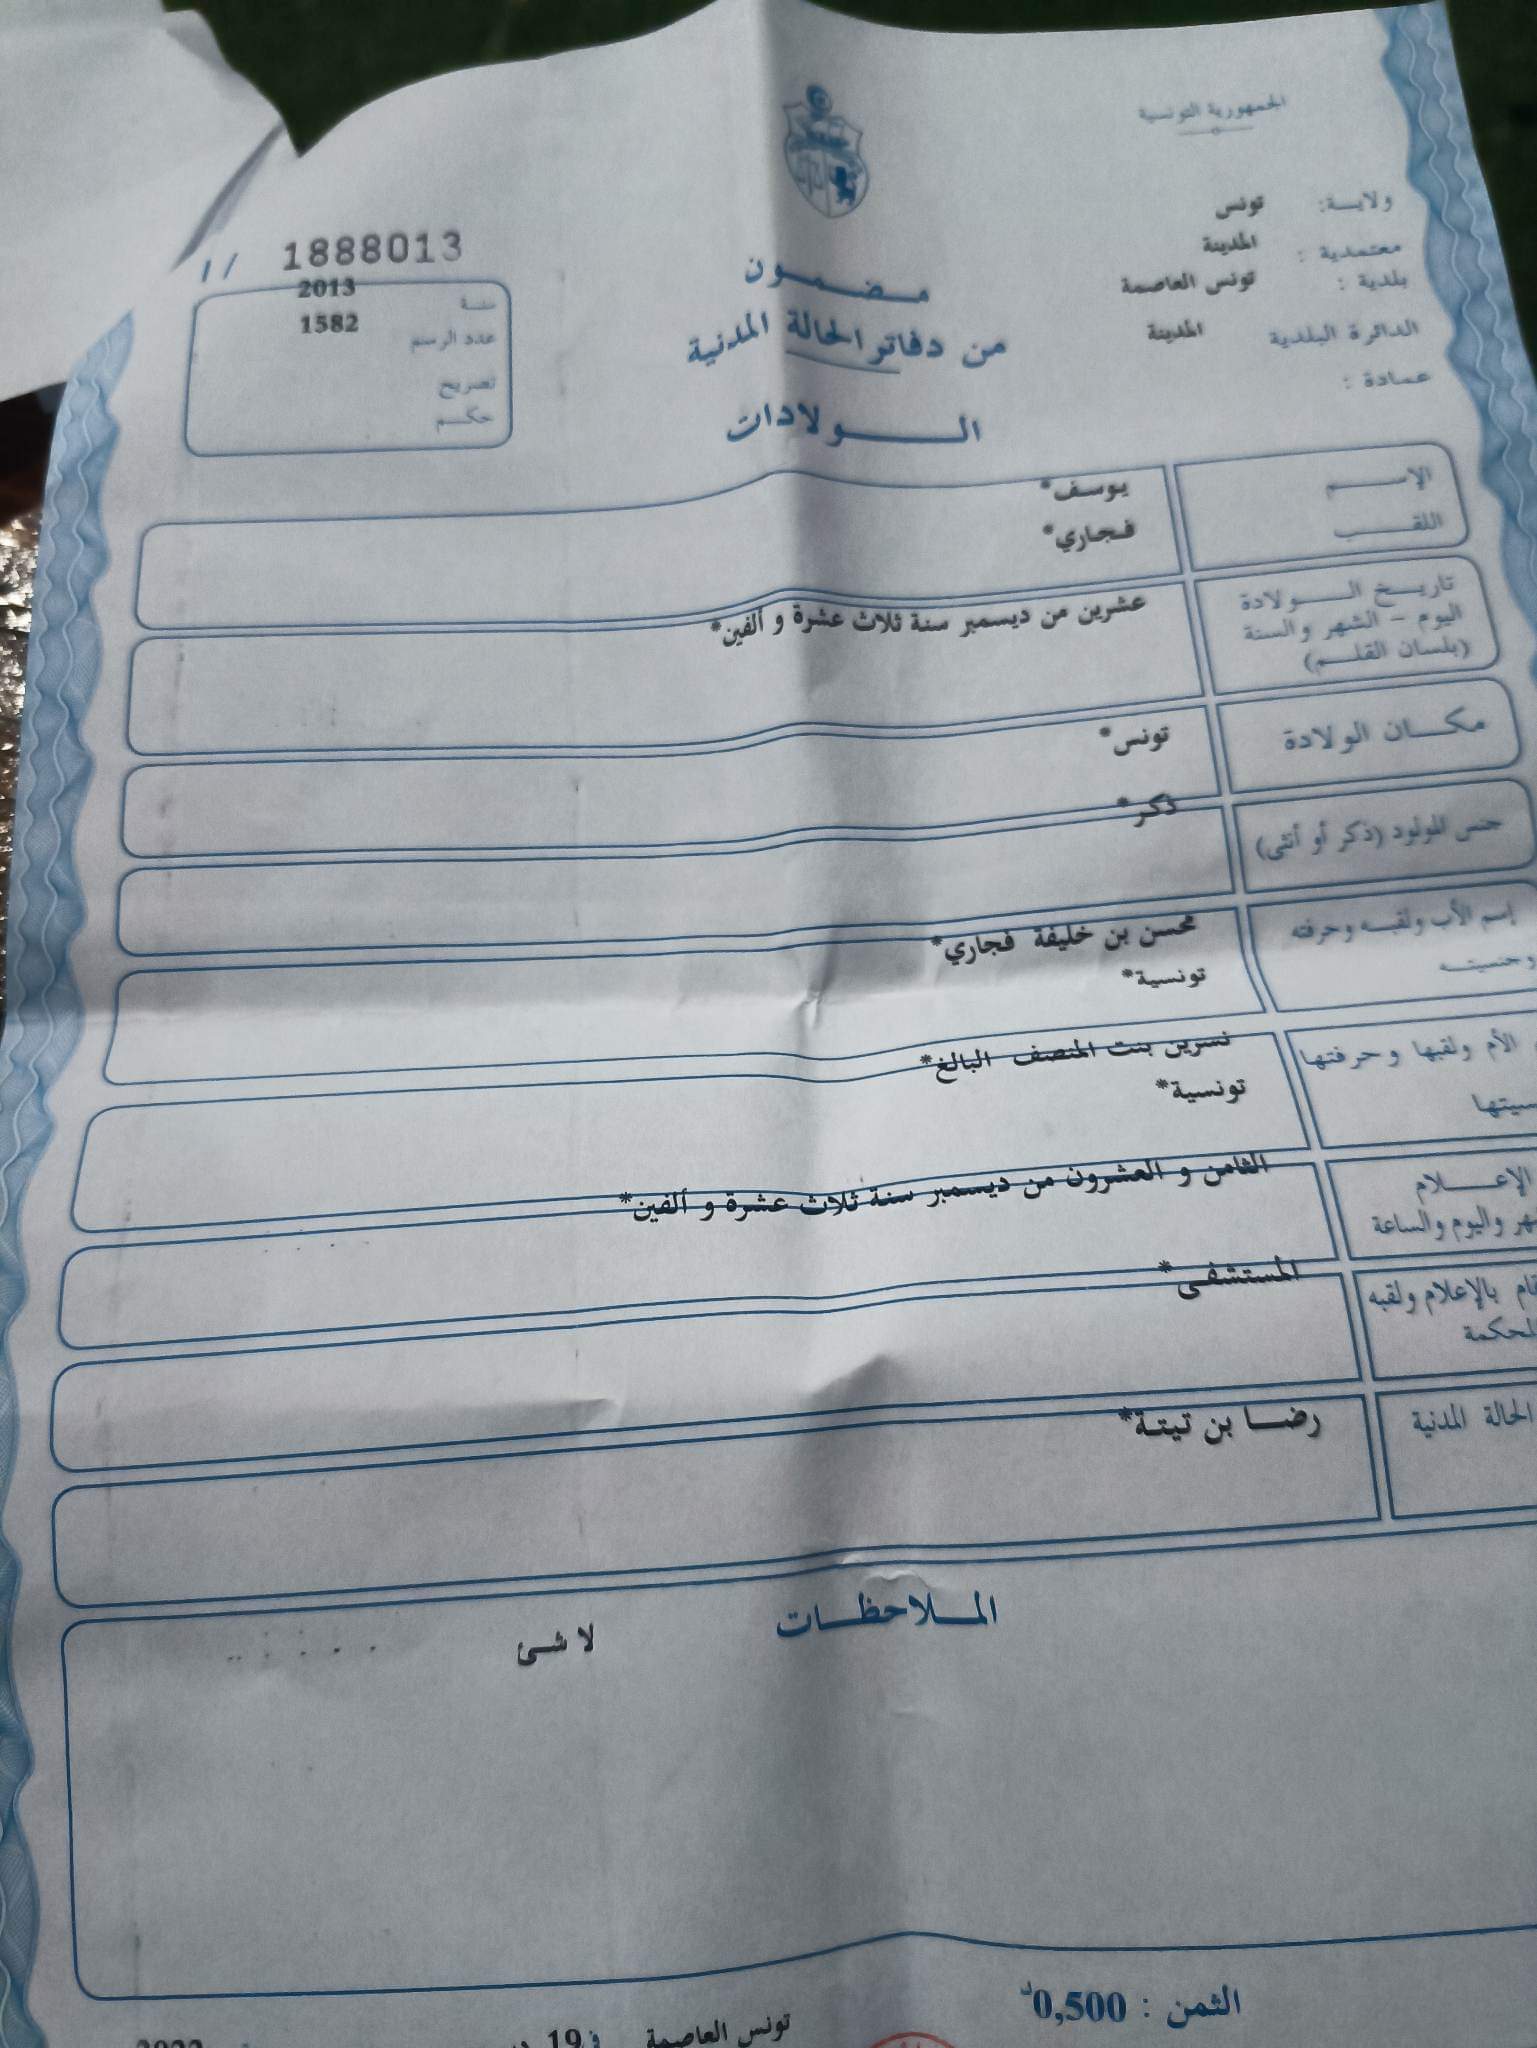 الجمهورية التونسية
ولاية: تونس
معتمدية : المدينة
بلدية : تونس العاصمة
الدائرة البلدية المدينة
عمادة :
مضمون
من دفاتر الحالة المدنية
الولادات
1888013
سنة 2013
عدد الرسم 1582
تصريح
حكم
الإسم يوسف*
اللقب فجاري*
تاريخ الولادة
اليوم - الشهر والسنة
(بلسان القلم)
عشرين من ديسمبر سنة ثلاث عشرة و ألفين*
مكان الولادة تونس*
جنس المولود (ذكر أو أنثى) ذكر*
إسم الأب ولقبه وحرفته محسن بن خليفة فجاري*
وجنسيته تونسية*
الأم ولقبها وحرفتها نسرين بنت المنصف البالغ*
تونسية*
الإعلام
واليوم والساعة
الثامن و العشرون من ديسمبر سنة ثلاث عشرة و ألفين*
بالإعلام ولقبه المستشفى*
الحالة المدنية رضا بن تيتة*
الملاحظات
لا شئ
الثمن : 0,500د
تونس العاصمة في 19